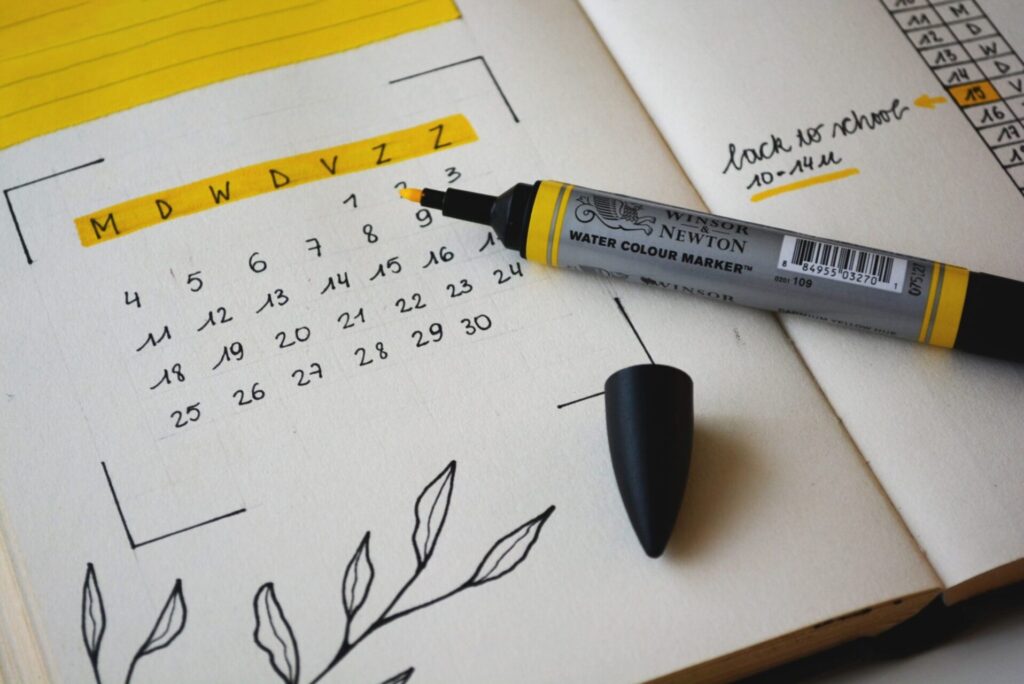 M D W D V Z Z
1 2 3
4 5 6 7 8 9
11 12 13 14 15 16
18 19 20 21 22 23 24
25 26 27 28 29 30
WINSOR
& NEWTON
WATER COLOUR MARKER™
WINSOR
8 84955 03270 1
0201 109
CADMIUM YELLOW HUE
back to school
10-14u
11 M
12 D
13 W
14 D
15 V
16
17